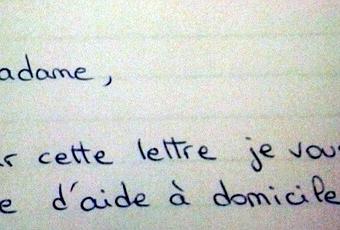 adame,
r cette lettre je vous
e d'aide à domicile